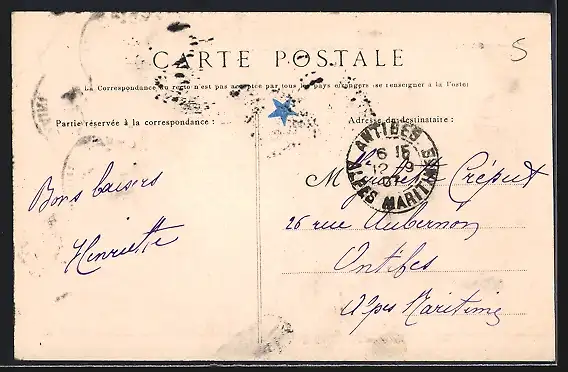 5
CARTE POSTALE
La Correspondance au recto n'est pas acceptée par tous les pays étrangers (se renseigner à la Poste)
Partie réservée à la correspondance :
Adresse du destinataire :
ANTIBES
6 15
12 9
07
ALPES MARITIMES
Crépeet
Bons baisers
Henriette
26 rue Aubernon
Antibes
Alpes Maritimes